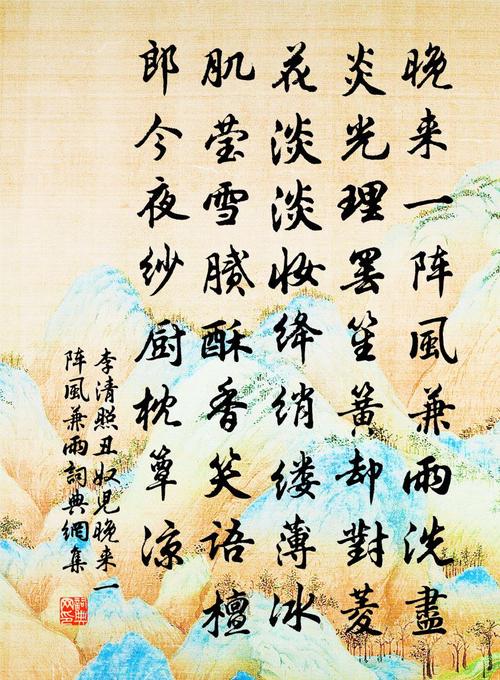 晚来一阵風兼雨洗盡
炎光理罢笙簧却對菱
花淡淡妆绛绡缕薄冰
肌莹雪腻酥香笑语檀
郎今夜纱厨枕簟凉
李清照丑奴児晚来一
阵風兼雨詞典網集